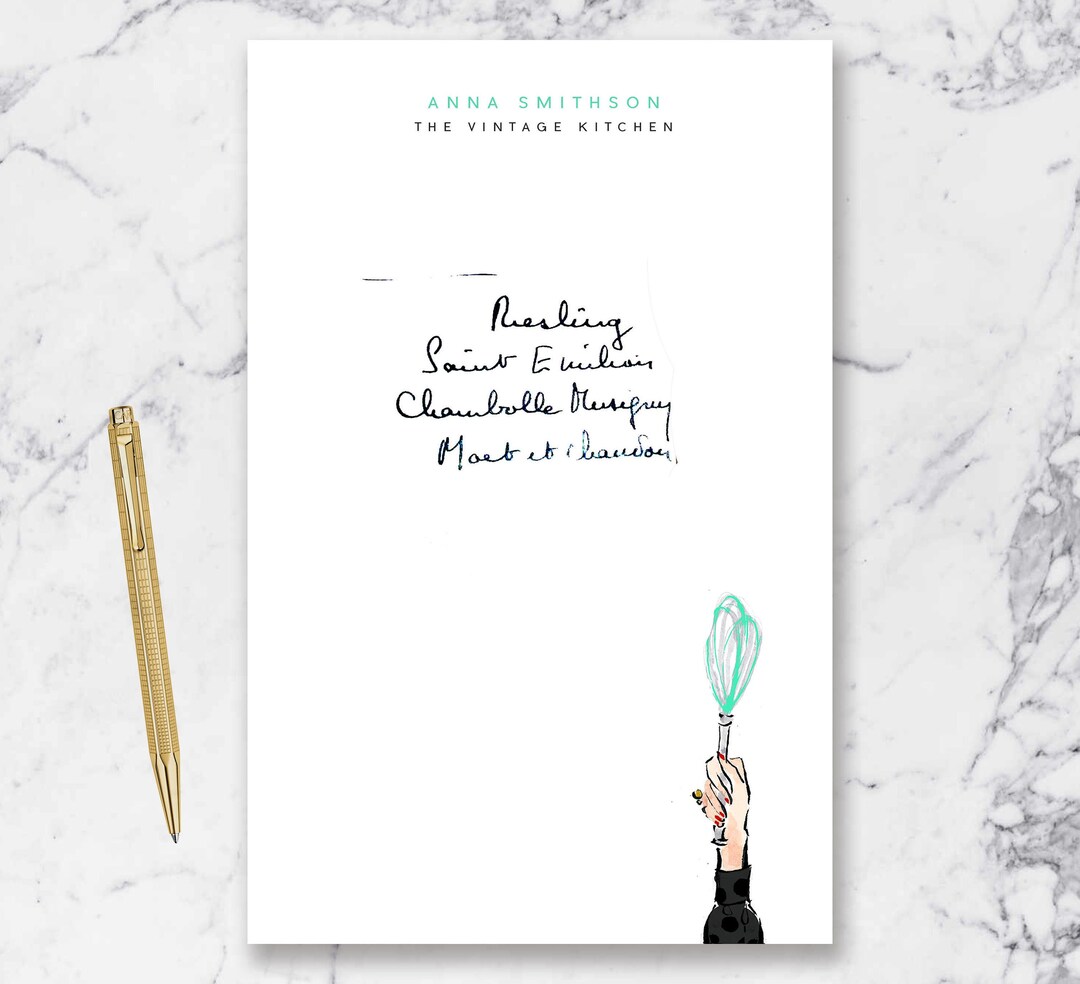 ANNA SMITHSON
THE VINTAGE KITCHEN
Riesling
Saint Emilion
Chambolle Musigny
Moet et Chandon